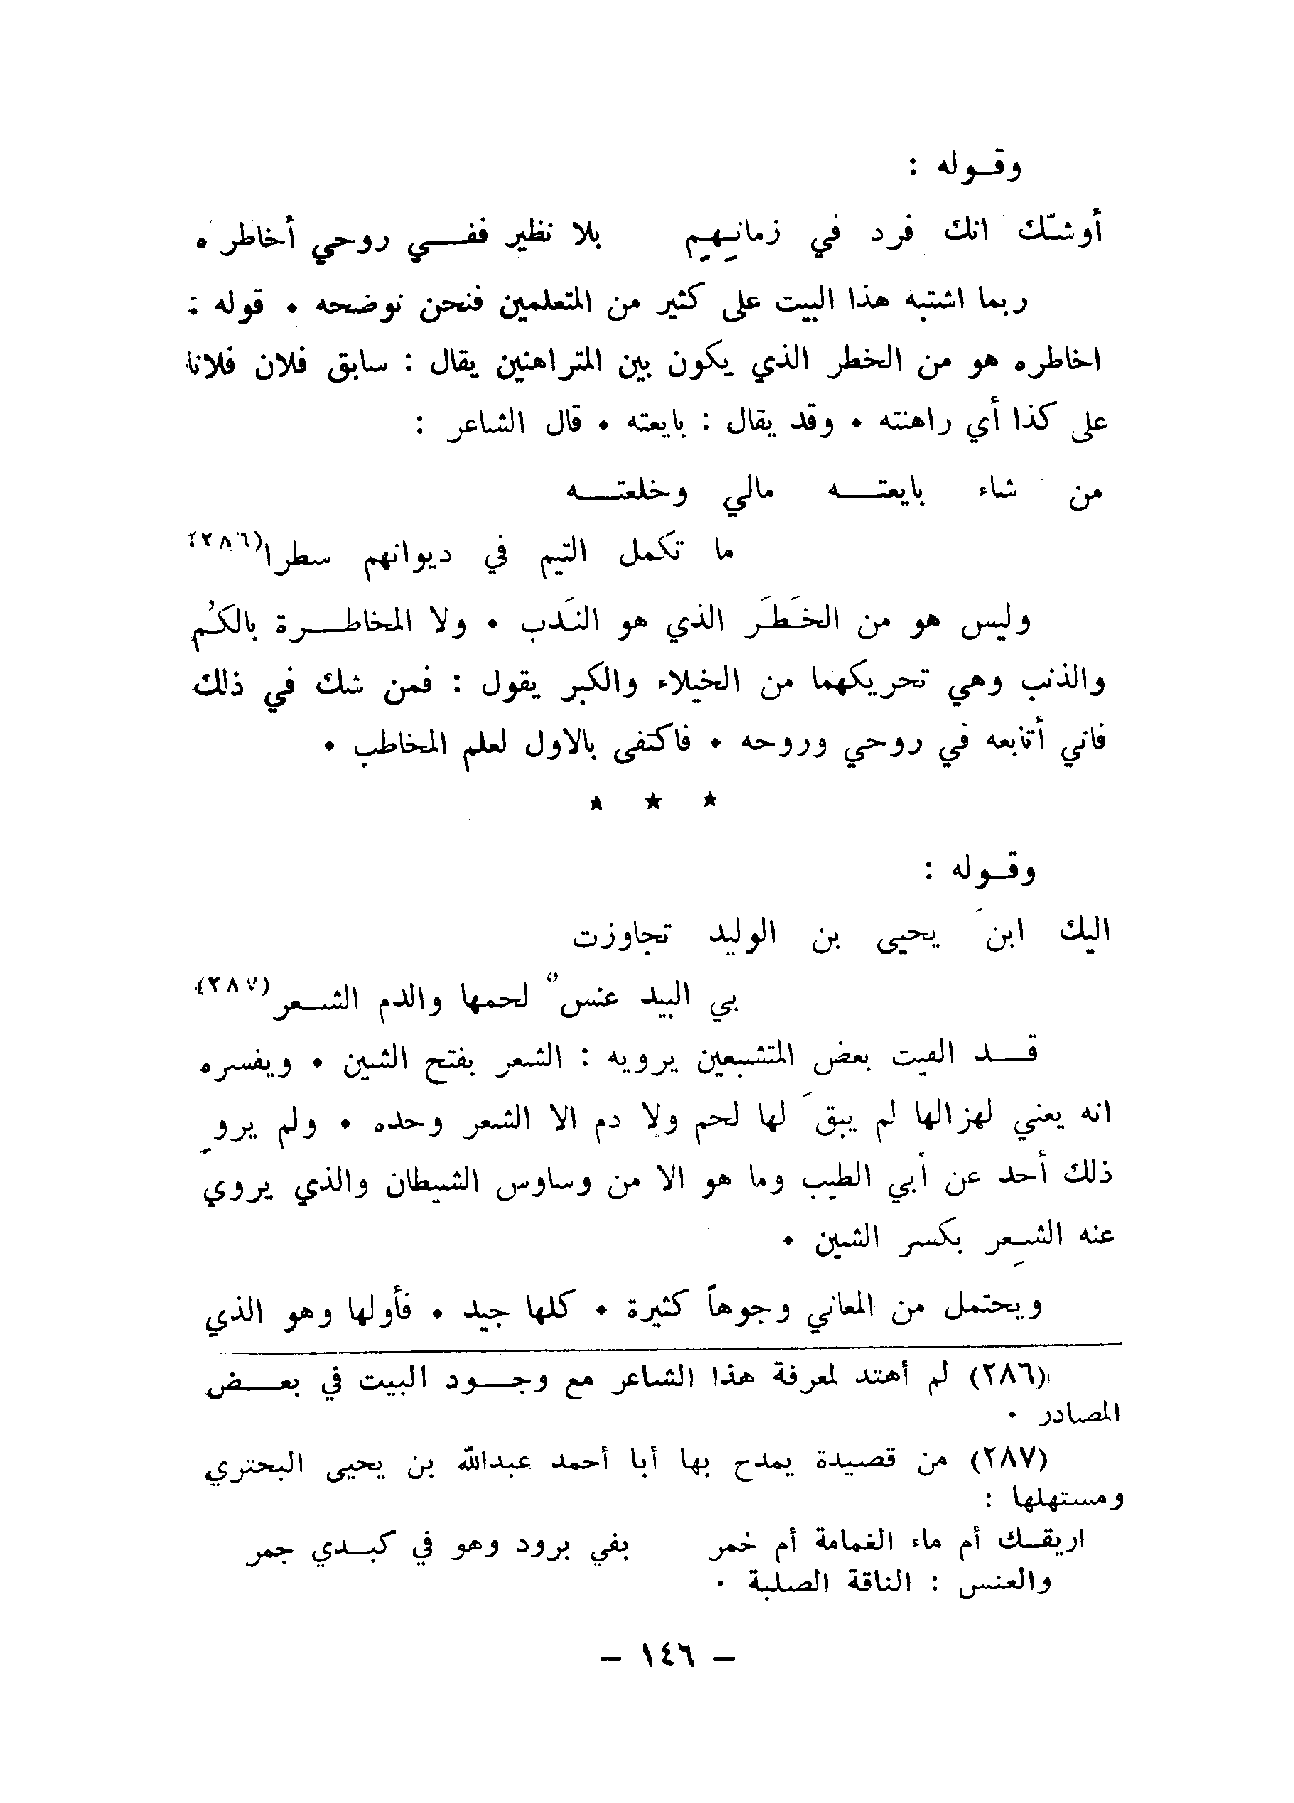 وقوله :
أوشّك انك فرد في زمانهم بلا نظير ففي روحي أخاطره
ربما اشتبه هذا البيت على كثير من المتعلمين فنحن نوضحه . قوله :
اخاطره هو من الخطر الذي يكون بين المتراهنين يقال : سابق فلان فلانا
على كذا أي راهنته . وقد يقال : بايعته . قال الشاعر :
من شاء بايعته مالي وخلعته
ما تكمل التيم في ديوانهم سطرا(٢٨٦)
وليس هو من الخَطَر الذي هو النَدب . ولا المخاطرة بالكُم
والذنب وهي تحريكهما من الخيلاء والكبر يقول : فمن شك في ذلك
فاني أتابعه في روحي وروحه . فاكتفى بالاول لعلم المخاطب .
★ ★ ★
وقوله :
اليك ابنَ يحيى بن الوليد تجاوزت
بي البيد عنسٌ لحمها والدم الشعر(٢٨٧)
قد الفيت بعض المتشبعين يرويه : الشعر بفتح الشين . ويفسره
انه يعني لهزالها لم يبقَ لها لحم ولا دم الا الشعر وحده . ولم يروِ
ذلك أحد عن أبي الطيب وما هو الا من وساوس الشيطان والذي يروي
عنه الشِعر بكسر الشين .
ويحتمل من المعاني وجوهاً كثيرة . كلها جيد . فأولها وهو الذي
(٢٨٦) لم أهتد لمعرفة هذا الشاعر مع وجود البيت في بعض
المصادر .
(٢٨٧) من قصيدة يمدح بها أبا أحمد عبدالله بن يحيى البحتري
ومستهلها :
اريقك أم ماء الغمامة أم خمر بفي برود وهو في كبدي جمر
والعنس : الناقة الصلبة .
– ١٤٦ –